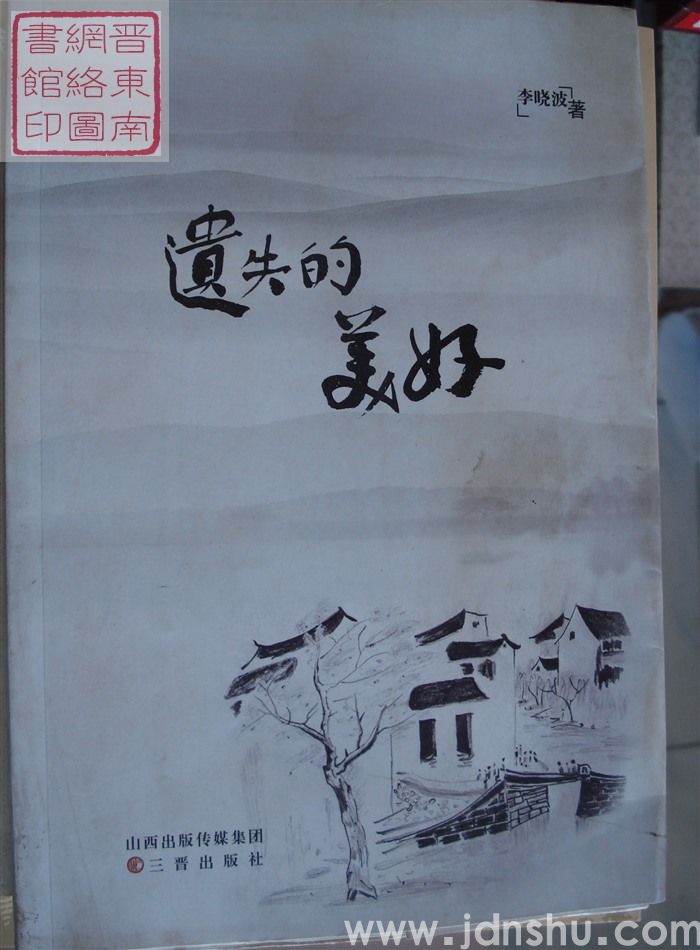 晋東南
網絡圖
書館印
李晓波 著
遺失的
美好
山西出版传媒集团
三晋出版社
www.jdnshu.com